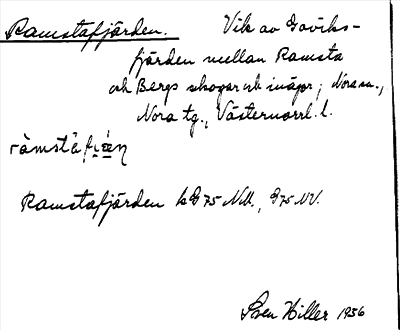 Ramstafjärden. Vik av Gaviks-
fjärden mellan Ramsta
och Bergs skogar och inägor; Nora sn.,
Nora tg., Västernorrl. l.
ramstafjäen
Ramstafjärden kG75 NV., G75 NV.
Sven Hiller 1936